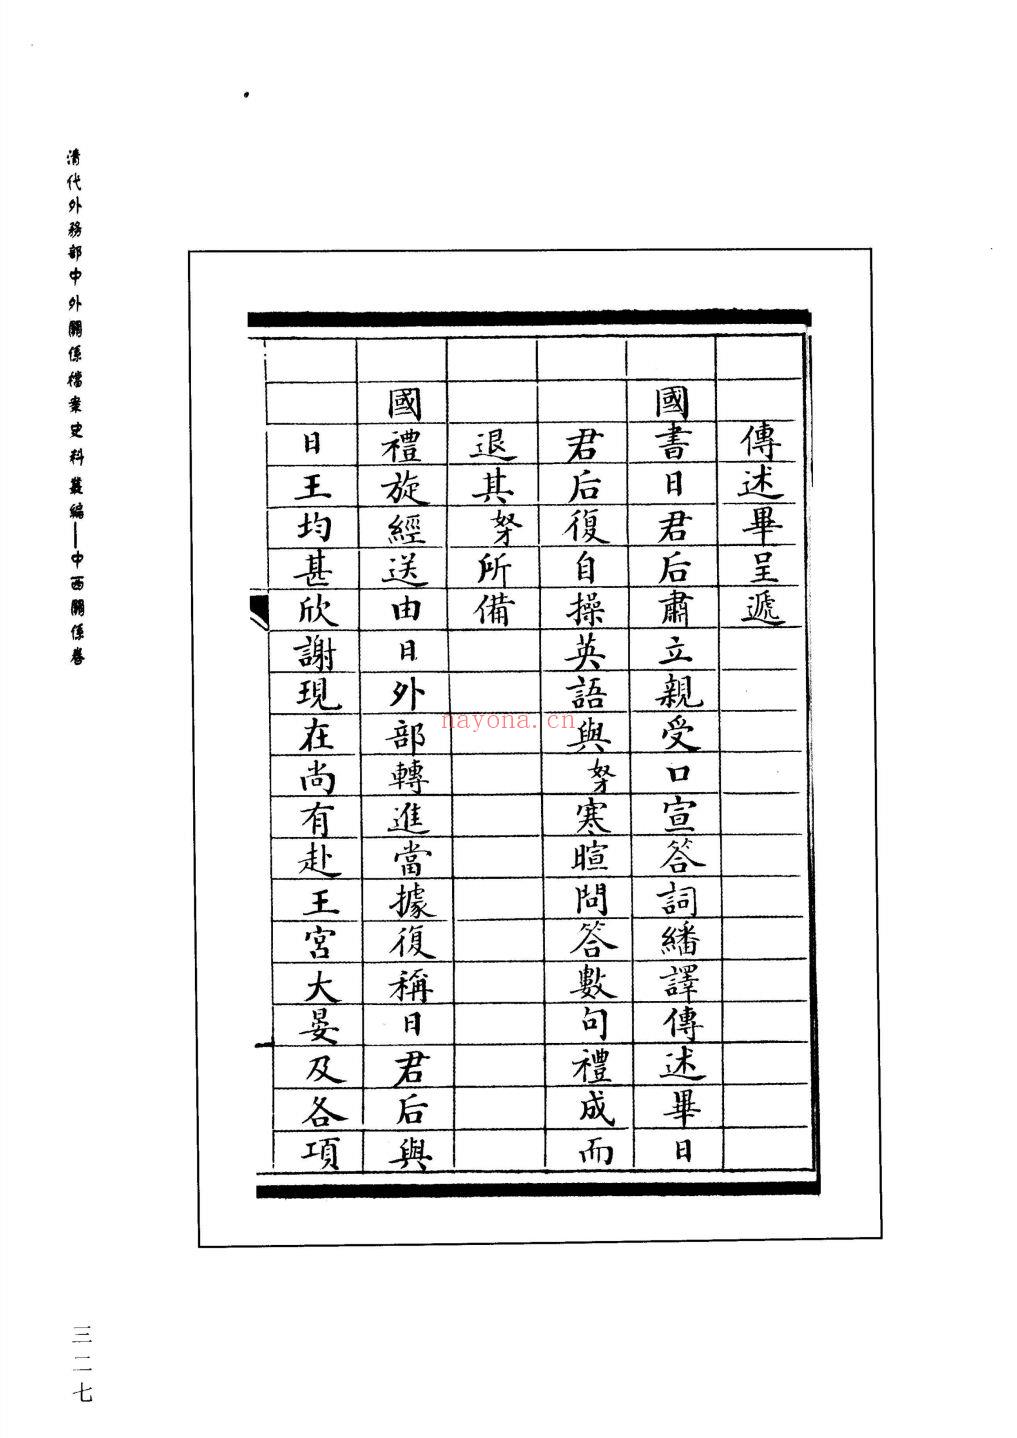 傳述畢呈遞
國書日君后肅立親受口宣答詞繙譯傳述畢日
君后復自操英語與奴才寒暄問答數句禮成而
退其奴才所備
國禮旋經送由日外部轉進當據復稱日君后與
日王均甚欣謝現在尚有赴王宮大晏及各項
清代外務部中外關係檔案史料叢編——中西關係卷
三二七
nayona.cn